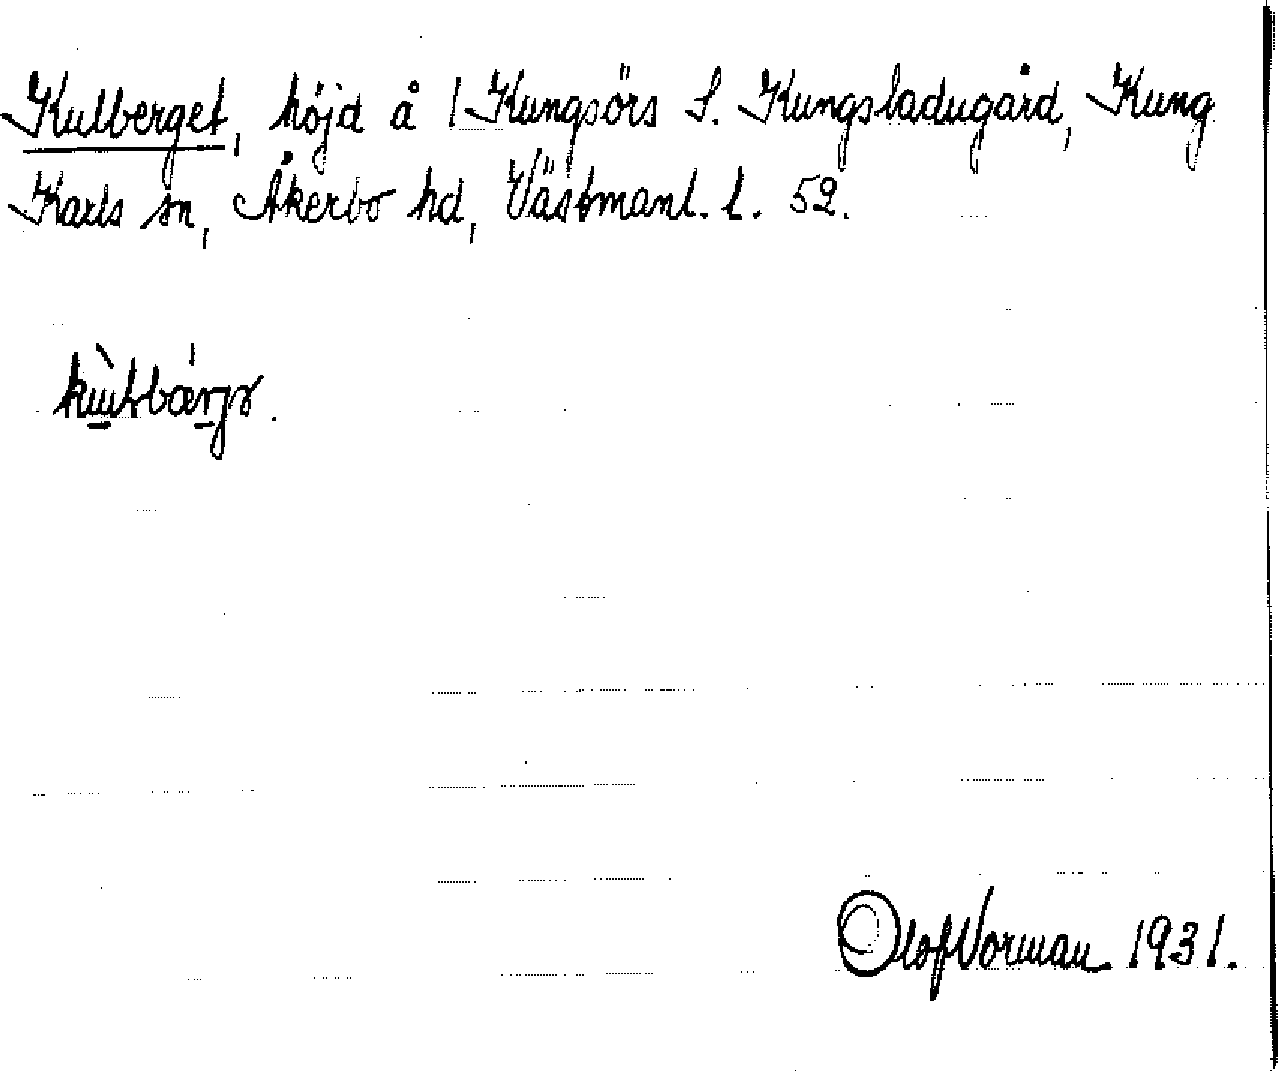 Kulberget, höjd å 1 Kungsörs S. Kungsladugård, Kung
Karls sn, Åkerbo hd, Västmanl. l. 52.
Olof Norman 1931.